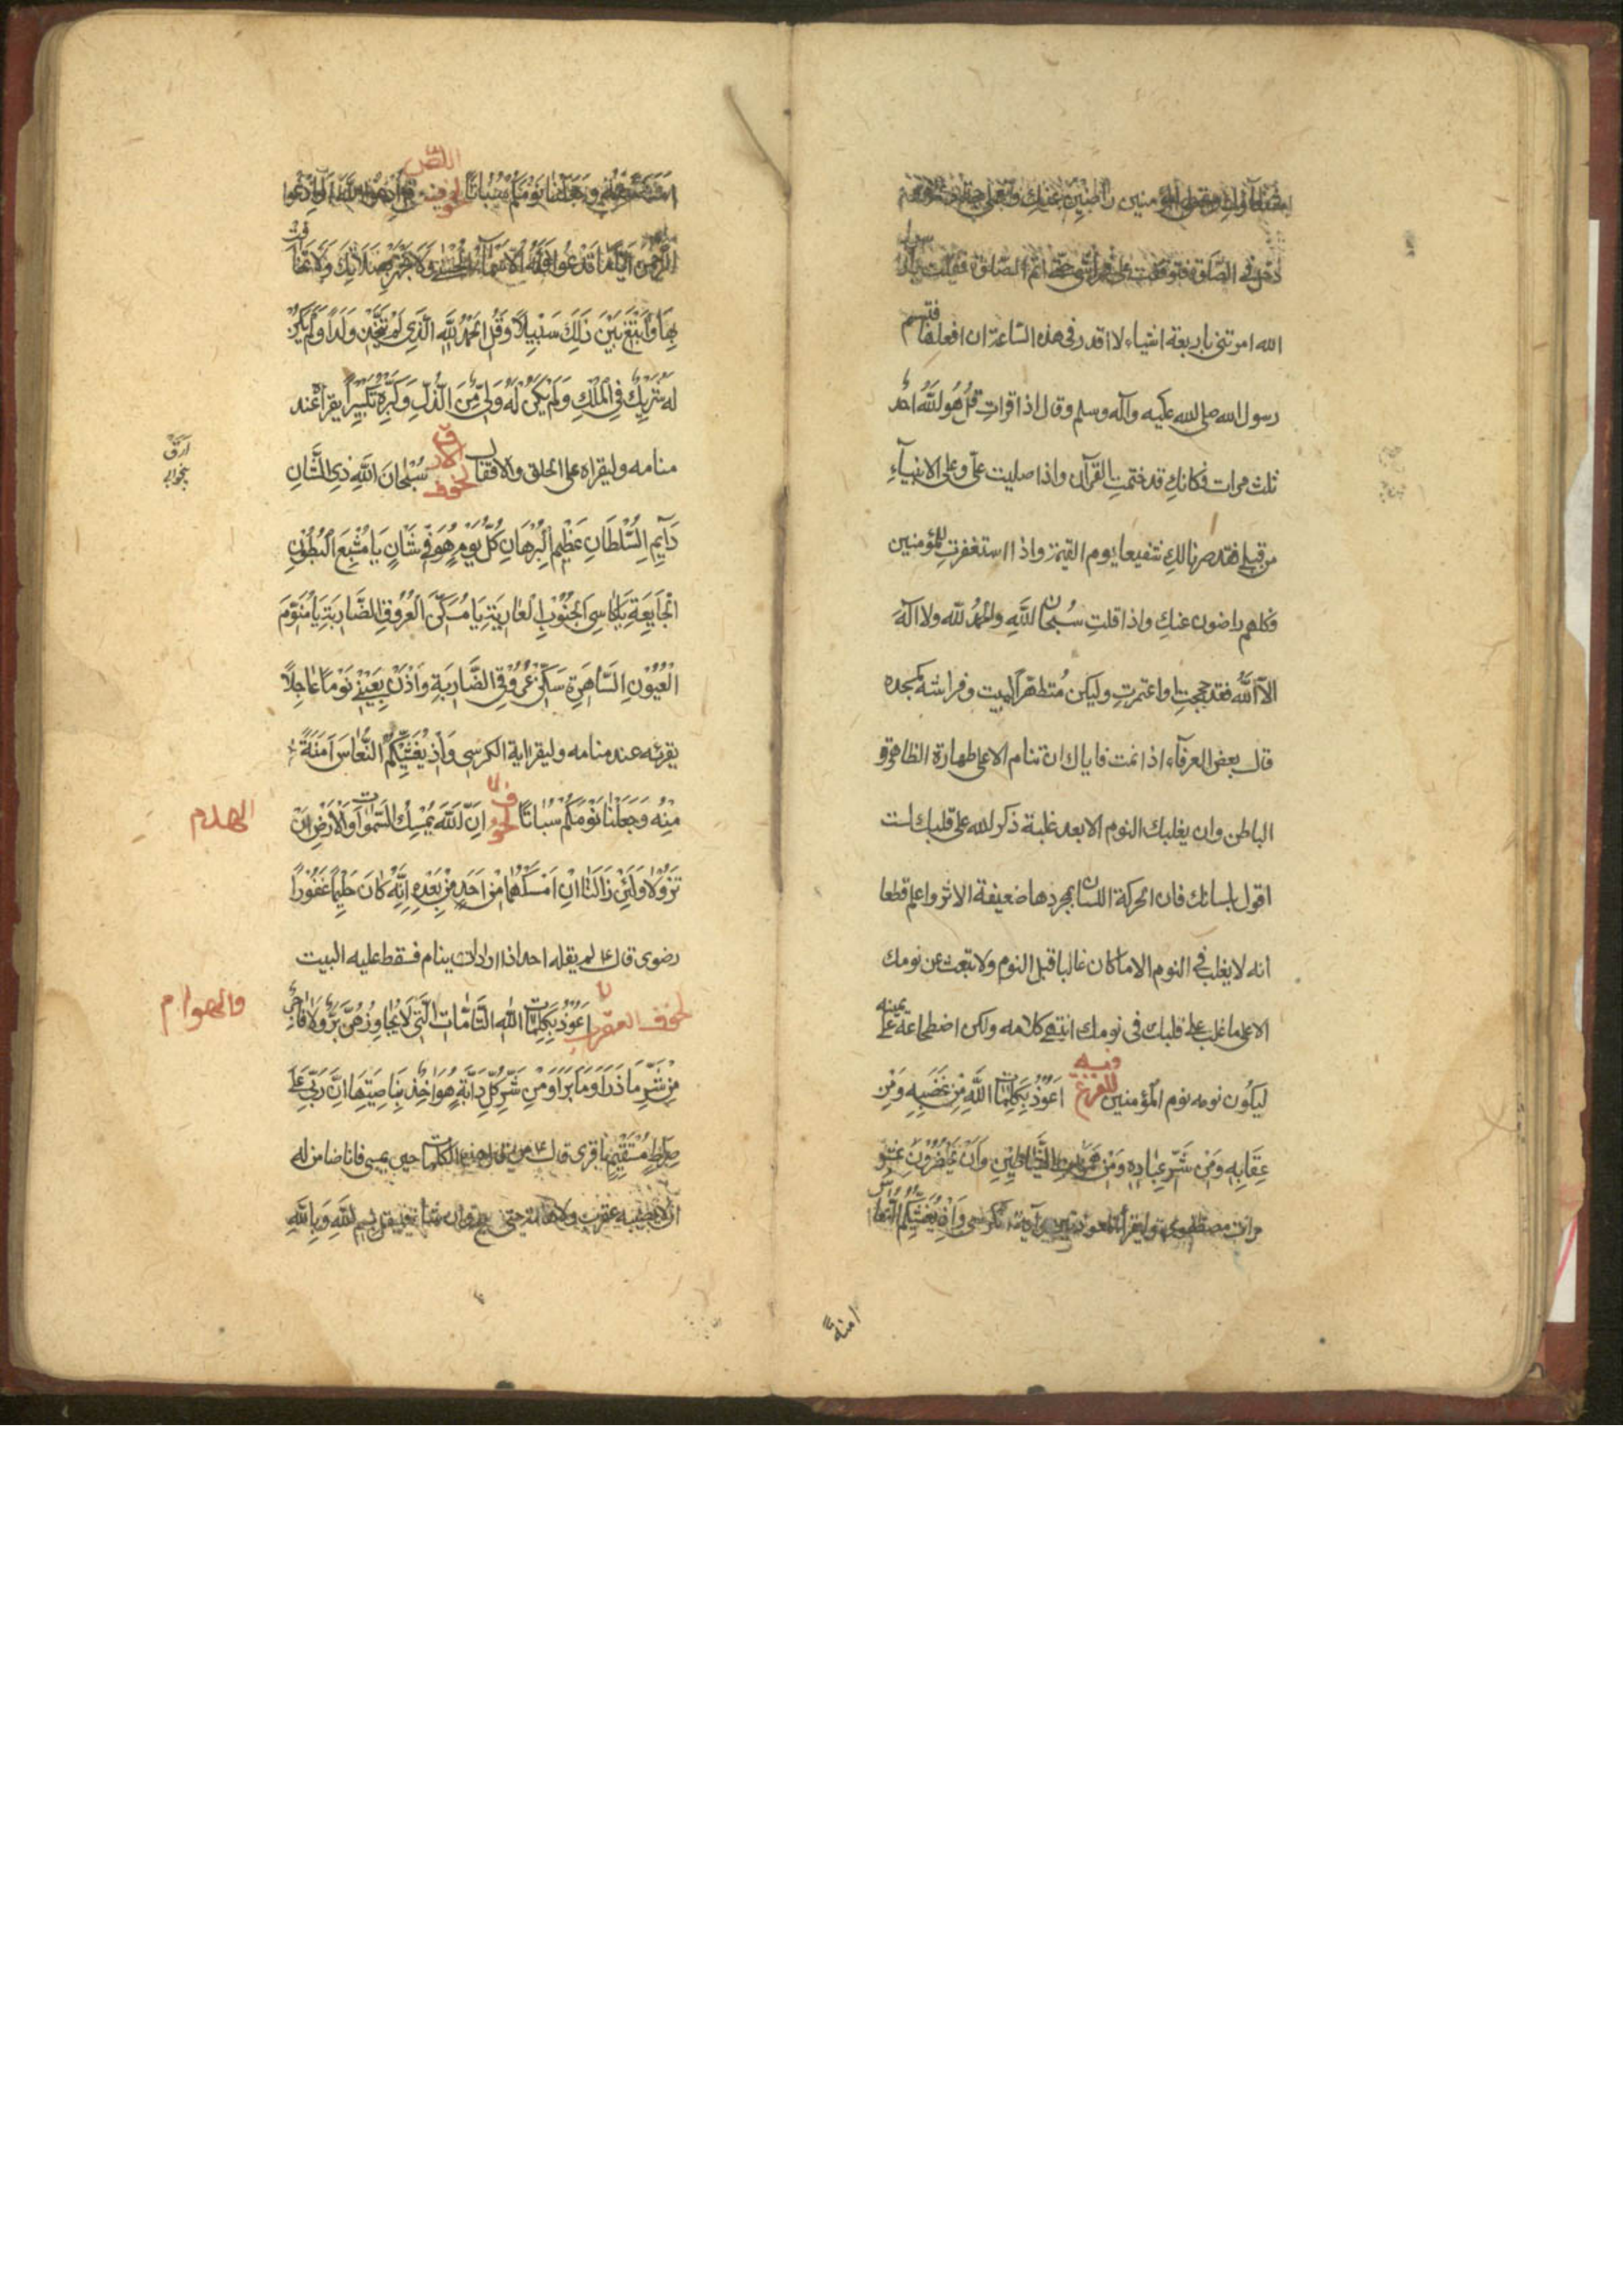 شفعاؤك وتجعلي المؤمنين راضين عنك وتعملي حجة وعمرة ثم
دخل في الصلوة فتوقفت على فراشي حتى اتم الصلوة فقلت يا رسول
الله امرتني باربعة اشياء لا اقدر في هذه الساعة ان افعلها فتبسم
رسول الله صلى الله عليه وآله وسلم وقال اذا قرات قُلْ هُوَ اللَّهُ اَحَدٌ
ثلث مرات فكانكِ قد ختمتِ القرآن واذا صليت علي وعلى الانبياءِ
من قبلي فقد صرنا لكِ شفيعا يوم القيمة واذا استغفرتِ للمؤمنين
فكلهم راضون عنكِ واذا قلتِ سُبحان اللَّهِ والحَمْدُ لله ولا الهَ
الّا اللّٰه فقد حججتِ واعتمرتِ وليكن مُتطهّراً ليبيت وفراشه كمسجده
قال بعض العرفآء اذا نمت فاياك ان تنام الا على طهارة الظاهر و
الباطن وان يغلبك النوم الا بعد غلبة ذكر الله على قلبك لست
اقول بلسانك فان الحركة اللسان بمجردها ضعيفة الاثر واعلم قطعا
انه لا يغلب في النوم الا ما كان غالبا قبل النوم ولا تبعث عن نومك
الا على ما غلب على قلبك في نومك انتهى كلامه ولكن اضطجاعه على يمينه
ليكون نومه نوم المؤمنين للفزع فيه اَعُوذُ بِكَلِمَاتِ اللَّهِ مِنْ غَضَبِهِ وَمِنْ
عِقَابِهِ وَمِنْ شَرِّ عِبَادِهِ وَمِنْ هَمَزَاتِ الشَّيَاطِينِ وَاَنْ يَحْضُرُونِ عشر
مرات وليقرأ المعوذتين وآية الكرسي وَاِذْ يُغَشِّيكُمُ النُّعَاسَ
امنةً
اَمَنَةً مِنْهُ وَجَعَلْنَا نَوْمَكُمْ سُبَاتًا لخوف اللص فيه قُلِ ادْعُوا اللَّهَ اَوِ ادْعُوا
الرَّحْمٰنَ اَيًّا مَا تَدْعُوا فَلَهُ الْاَسْمَآءُ الْحُسْنٰى وَلَا تَجْهَرْ بِصَلَاتِكَ وَلَا تُخَافِتْ
بِهَا وَابْتَغِ بَيْنَ ذٰلِكَ سَبِيلًا وَقُلِ الْحَمْدُ لِلَّهِ الَّذِي لَمْ يَتَّخِذْ وَلَدًا وَلَمْ يَكُنْ
لَهُ شَرِيكٌ فِي الْمُلْكِ وَلَمْ يَكُنْ لَهُ وَلِيٌّ مِنَ الذُّلِّ وَكَبِّرْهُ تَكْبِيرًا يقرا عند
منامه وليقراه على الحلق والاقفال لخوف الارق سُبْحَانَ اللَّهِ ذِي الشَّانِ
ارق
بيخوابى
دَآيِمِ السُّلْطَانِ عَظِيمِ الْبُرْهَانِ كُلَّ يَوْمٍ هُوَ فِي شَانٍ يَا مُشْبِعَ الْبُطُونِ
الْجَايِعَةِ يَا كَاسِيَ الْجُنُوبِ الْعَارِيَةِ يَا مُسَكِّنَ الْعُرُوقِ الضَّارِبَةِ يَا مُنَوِّمَ
الْعُيُونِ السَّاهِرَةِ سَكِّنْ عُرُوقِيَ الضَّارِبَةِ وَاْذَنْ لِعَيْنِي نَوْمًا عَاجِلًا
يقرئه عند منامه وليقرا اية الكرسي وَاِذْ يُغَشِّيكُمُ النُّعَاسَ اَمَنَةً
مِنْهُ وَجَعَلْنَا نَوْمَكُمْ سُبَاتًا لخوف اِنَّ اللَّهَ يُمْسِكُ السَّمٰوَاتِ وَالْاَرْضَ اَنْ
الهدم
تَزُولَا وَلَئِنْ زَالَتَا اِنْ اَمْسَكَهُمَا مِنْ اَحَدٍ مِنْ بَعْدِهِ اِنَّهُ كَانَ حَلِيمًا غَفُورًا
رضوى قال ع لم يقله احد اذا اراد ان ينام فسقط عليه البيت
لخوف العقرب اَعُوذُ بِكَلِمَاتِ اللّٰهِ التَّامَّاتِ الَّتِي لَا يُجَاوِزُهُنَّ بَرٌّ وَلَا فَاجِرٌ
والهوام
مِنْ شَرِّ مَا ذَرَاَ وَمَا بَرَاَ وَمِنْ شَرِّ كُلِّ دَابَّةٍ هُوَ آخِذٌ بِنَاصِيَتِهَا اِنَّ رَبِّي عَلَى
صِرَاطٍ مُسْتَقِيمٍ باقرى قال ع من قال هذه الكلمات حين يمسي فانا ضامن له
ان لا يصيبه عقرب ولا هامة حتى يصبح وان شاء فليقل بِسْمِ اللَّهِ وَبِاللَّهِ